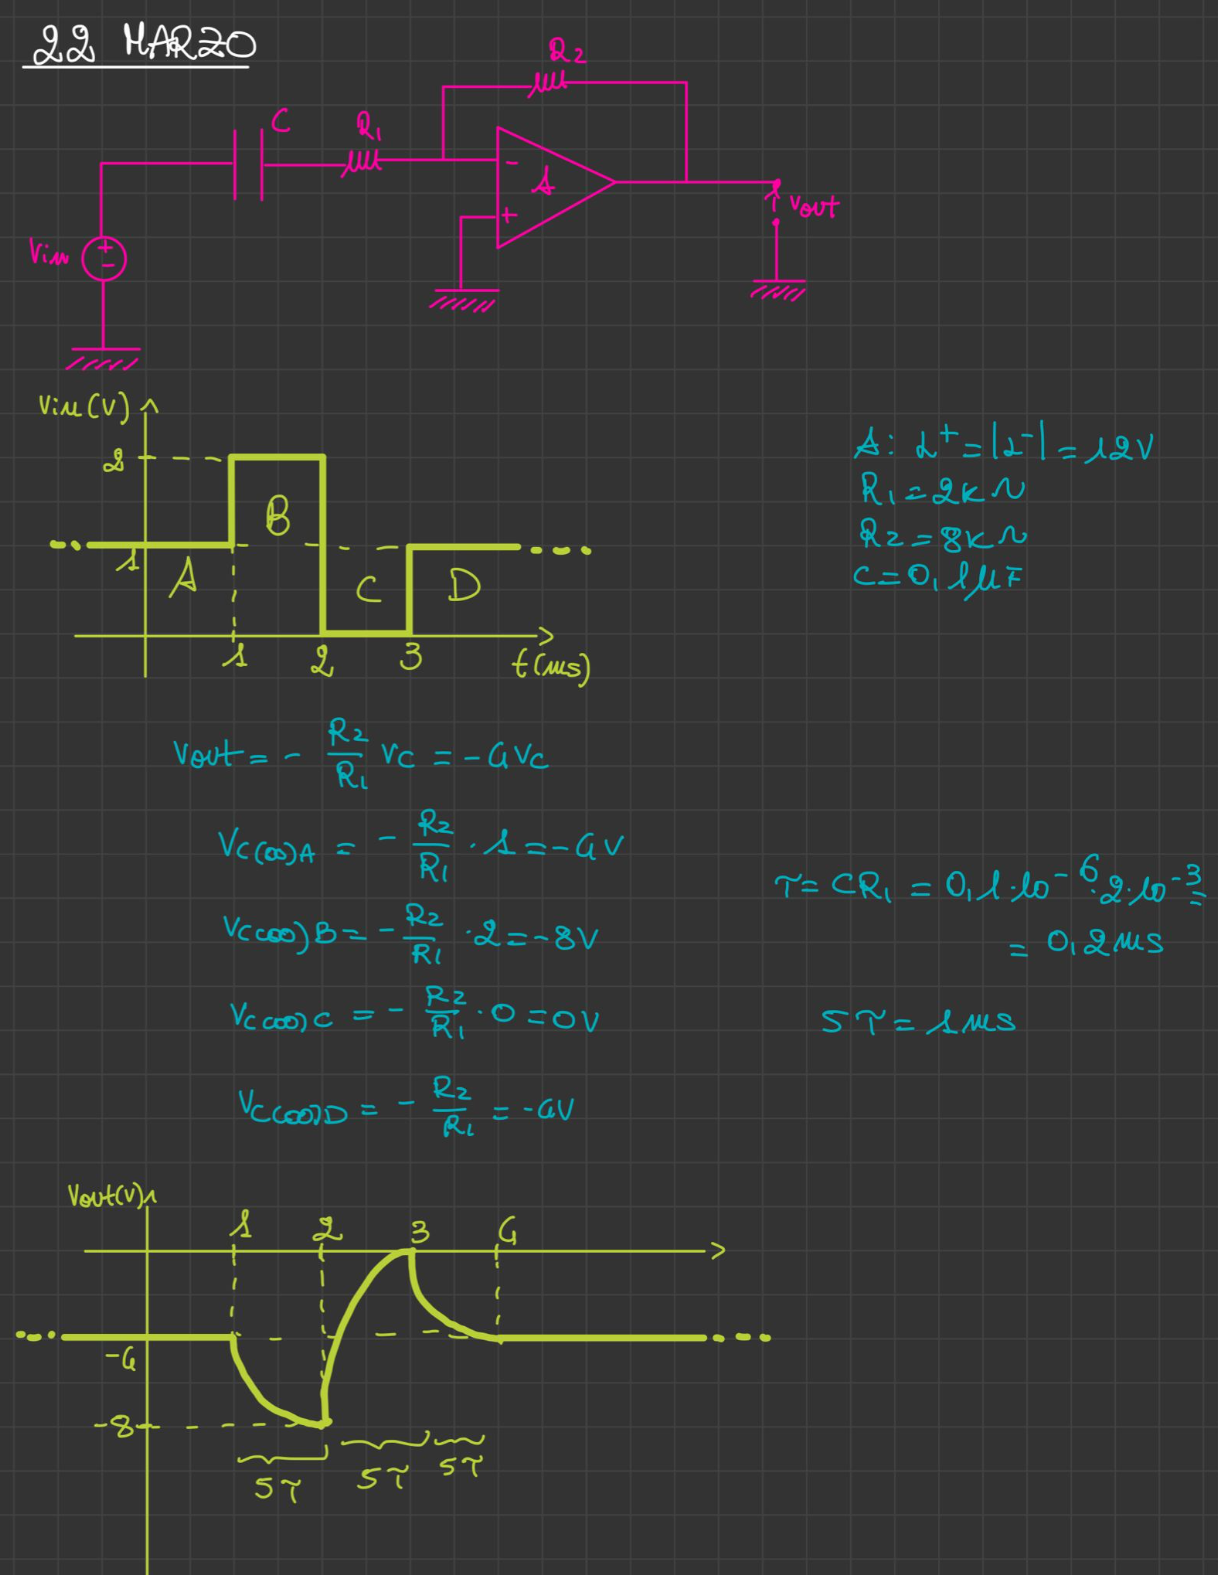 22 MARZO
R2
C
R1
-
A
+
Vout
Vin
+
-
Vin(V)
2
B
1
A
C
D
1
2
3
t(ms)
A: L⁺=|L⁻|=12V
R1=2KΩ
R2=8KΩ
C=0,1μF
Vout = - R2/R1 VC = -4VC
VC(∞)A = - R2/R1 · 1 = -4V
VC(∞)B = - R2/R1 · 2 = -8V
VC(∞)C = - R2/R1 · 0 = 0V
VC(∞)D = - R2/R1 = -4V
τ = CR1 = 0,1·10⁻⁶·2·10⁻³=
= 0,2ms
5τ = 1ms
Vout(V)
1
2
3
4
-4
-8
5τ
5τ
5τ